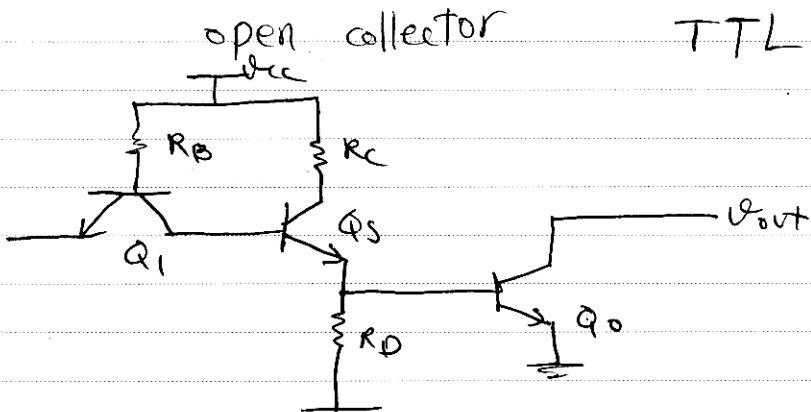 open collector TTL
vcc
RB
RC
QS
Q1
vout
RD
Qo